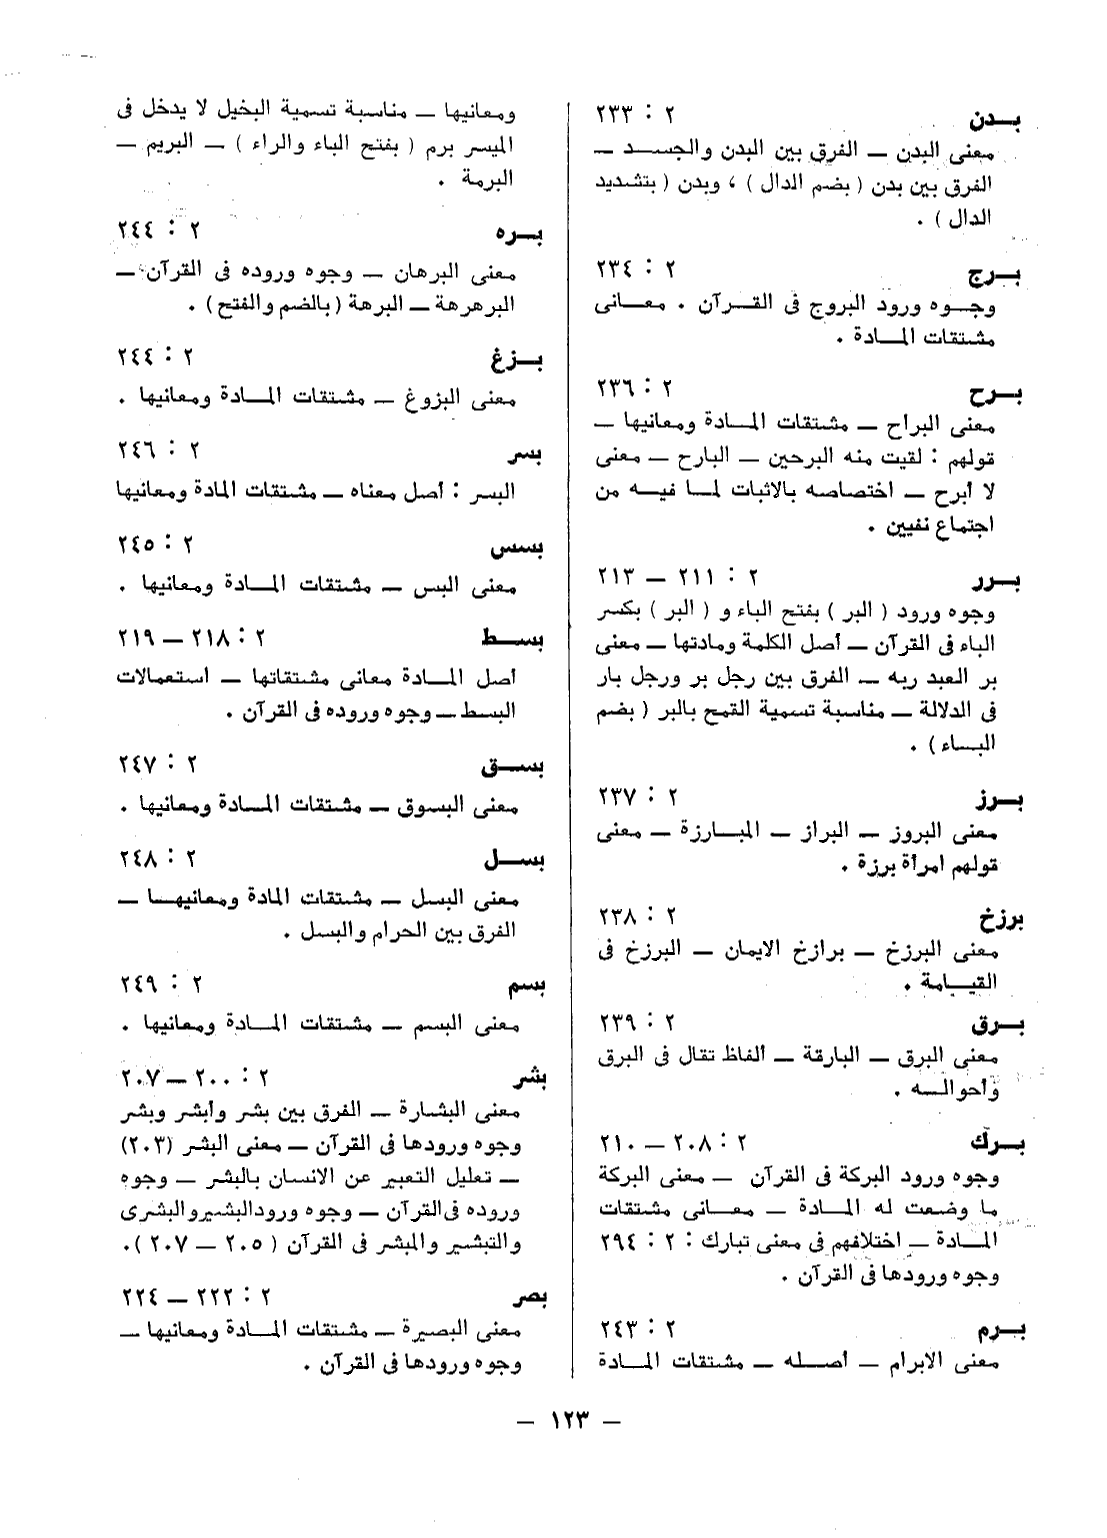 بــدن ٢ : ٢٣٣
معنى البدن ــ الفرق بين البدن والجســد ــ
الفرق بين بدن ( بضم الدال ) ، وبدن ( بتشديد
الدال ) .
بــرج ٢ : ٢٣٤
وجــوه ورود البروج فى القــرآن . معــانى
مشتقات المــادة .
بــرح ٢ : ٢٣٦
معنى البراح ــ مشتقات المــادة ومعانيها ــ
قولهم : لقيت منه البرحين ــ البارح ــ معنى
لا أبرح ــ اختصاصه بالاثبات لمــا فيــه من
اجتماع نفيين .
بــرر ٢ : ٢١١ ــ ٢١٣
وجوه ورود ( البر ) بفتح الباء و ( البر ) بكسر
الباء فى القرآن ــ أصل الكلمة ومادتها ــ معنى
بر العبد ربه ــ الفرق بين رجل بر ورجل بار
فى الدلالة ــ مناسبة تسمية القمح بالبر ( بضم
البــاء ) .
بــرز ٢ : ٢٣٧
معنى البروز ــ البراز ــ المبــارزة ــ معنى
قولهم امرأة برزة .
برزخ ٢ : ٢٣٨
معنى البرزخ ــ برازخ الايمان ــ البرزخ فى
القيــامة .
بــرق ٢ : ٢٣٩
معنى البرق ــ البارقة ــ ألفاظ تقال فى البرق
وأحوالــه .
بــرك ٢ : ٢٠٨ ــ ٢١٠
وجوه ورود البركة فى القرآن ــ معنى البركة
ما وضعت له المــادة ــ معــانى مشتقات
المــادة ــ اختلافهم فى معنى تبارك : ٢ : ٢٩٤
وجوه ورودها فى القرآن .
بــرم ٢ : ٢٤٣
معنى الابرام ــ أصــله ــ مشتقات المــادة
ومعانيها ــ مناسبة تسمية البخيل لا يدخل فى
الميسر برم ( بفتح الباء والراء ) ــ البريم ــ
البرمة .
بــره ٢ : ٢٤٤
معنى البرهان ــ وجوه وروده فى القرآن ــ
البرهرهة ــ البرهة ( بالضم والفتح ) .
بــزغ ٢ : ٢٤٤
معنى البزوغ ــ مشتقات المــادة ومعانيها .
بسر ٢ : ٢٤٦
البسر : أصل معناه ــ مشتقات المادة ومعانيها
بسس ٢ : ٢٤٥
معنى البس ــ مشتقات المــادة ومعانيها .
بســط ٢ : ٢١٨ ــ ٢١٩
أصل المــادة معانى مشتقاتها ــ استعمالات
البسط ــ وجوه وروده فى القرآن .
بســق ٢ : ٢٤٧
معنى البسوق ــ مشتقات المــادة ومعانيها .
بســل ٢ : ٢٤٨
معنى البسل ــ مشتقات المادة ومعانيهــا ــ
الفرق بين الحرام والبسل .
بسم ٢ : ٢٤٩
معنى البسم ــ مشتقات المــادة ومعانيها .
بشر ٢ : ٢٠٠ ــ ٢٠٧
معنى البشارة ــ الفرق بين بشر وأبشر وبشر
وجوه ورودها فى القرآن ــ معنى البشر (٢٠٣)
ــ تعليل التعبير عن الانسان بالبشر ــ وجوه
وروده فى القرآن ــ وجوه ورود البشير والبشرى
والتبشير والمبشر فى القرآن ( ٢٠٥ ــ ٢٠٧ ) .
بصر ٢ : ٢٢٢ ــ ٢٢٤
معنى البصيرة ــ مشتقات المــادة ومعانيها ــ
وجوه ورودها فى القرآن .
ــ ١٢٣ ــ